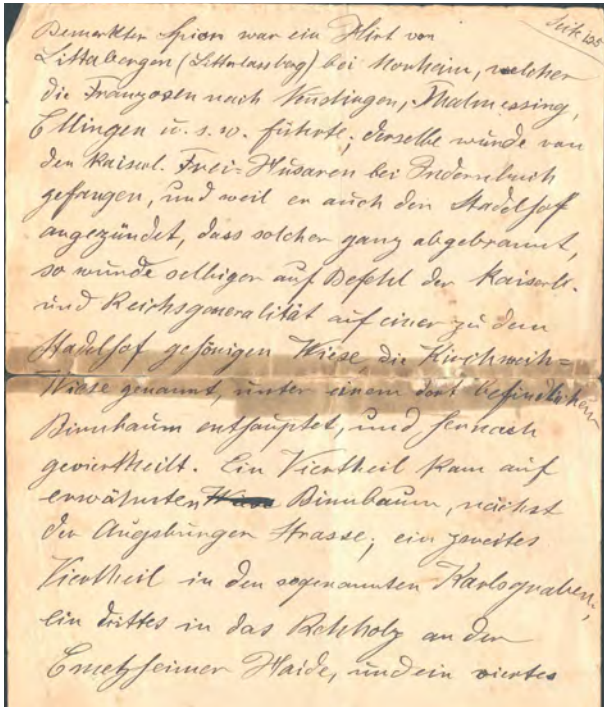 Seite 195
Bemerkter Spion war ein Hirt von
Littabergen (Litterlassberg) bei Monheim, welcher
die Franzosen nach Thalmessing,
Ellingen u. s. w. führte; derselbe wurde von
den Kaiserl. Frei=Husaren bei Indernbuch
gefangen, und weil er auch den Stadelhof
angezündet, dass solcher ganz abgebrannt,
so wurde selbiger auf Befehl der Kaiserl.
und Reichsgeneralität auf einer zu dem
Stadelhof gehörigen Wiese die Kirchweih=
Wiese genannt, unter einem dort befindlichen
Birnbaum enthauptet, und hernach
geviertheilt. Ein Viertheil kam auf
erwähnten Birnbaum, nächst
der Augsburger Strasse; ein zweites
Viertheil in den sogenannten Karlsgraben;
ein drittes in das Rehholz an der
Emetzheimer Haide, und ein viertes